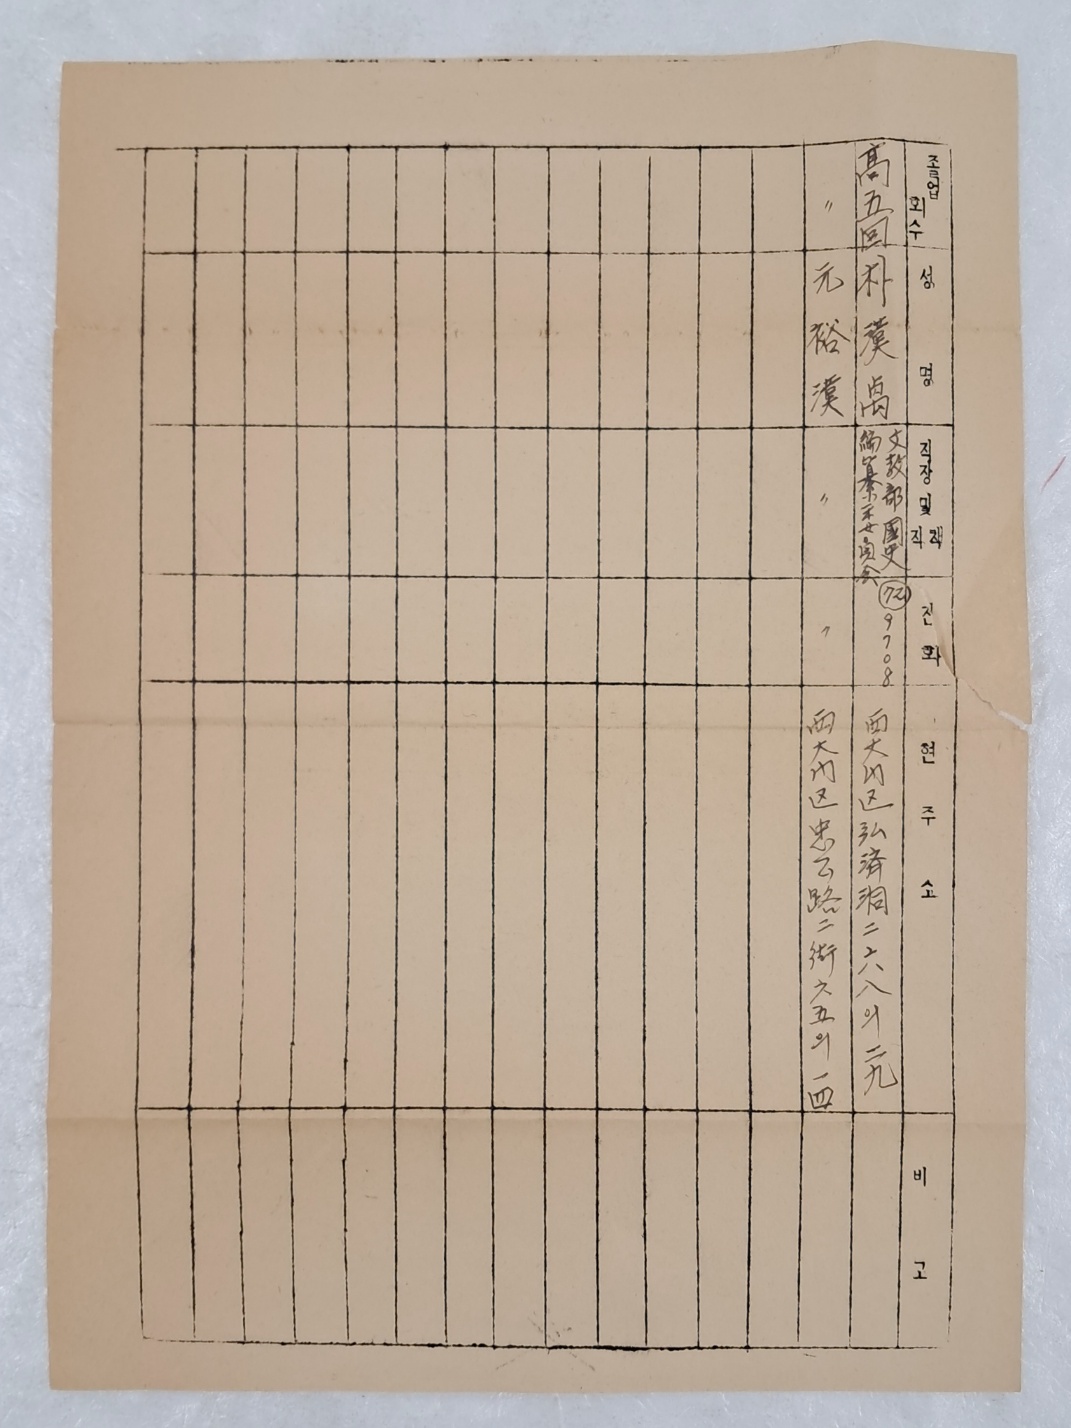 졸업 회수
성명
직장 및 직책
전화
현주소
비고
高五回
朴漢卨
文教部 國史
編纂委員会
72 9708
西大门区 弘済洞 二六八의 二九
〃
元裕漢
〃
〃
西大门区 忠正路 二街 六五의 一四